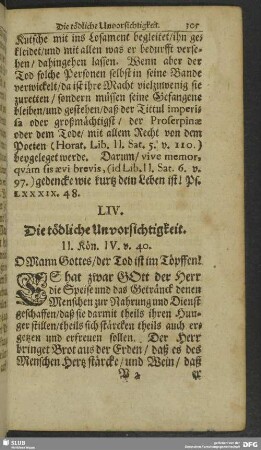 Die tödliche Unvorsichtigkeit. 305
Kutsche mit ins Losament begleitet/ ihn ge-
kleidet/ und mit allen was er bedurfft verse-
hen/ dahingehen lassen. Wenn aber der
Tod solche Personen selbst in seine Bande
verwickelt/ da ist ihre Macht viel zu wenig sie
zu retten/ sondern müssen seine Gefangene
bleiben/ und gestehen/ daß der Tittul imperio-
sa oder großmächtigst/ der Proserpinæ
oder dem Tode/ mit allem Recht von dem
Poeten (Horat. Lib. II. Sat. 5. v. 110.)
beygeleget werde. Darum/ vive memor,
qvàm sis ævi brevis, (id Lib. II. Sat. 6. v.
97.) gedencke wie kurtz dein Leben ist! Ps.
LXXXIX. 48.
LIV.
Die tödliche Unvorsichtigkeit.
II. Kön. IV. v. 40.
O Mann Gottes/ der Tod ist im Töpffen!
ES hat zwar GOtt der Herr
die Speise und das Getränck denen
Menschen zur Nahrung und Dienst
geschaffen/ daß sie darmit theils ihren Hun-
ger stillen/ theils sich stärcken theils auch er-
getzen und erfreuen sollen. Der Herr
bringet Brot aus der Erden/ daß es des
Menschen Hertz stärcke/ und Wein/ daß
er
SLUB
DFG